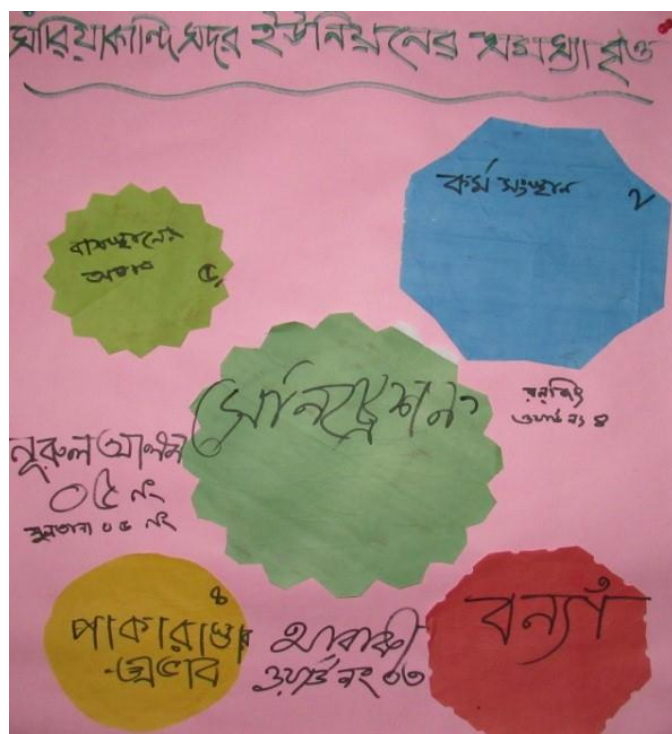 সারিয়াকান্দি সদর ইউনিয়নের সমস্যা বৃত্ত
কর্ম সংস্থান ২
বাসস্থানের
অভাব ৫
সেনিট্রেশন
ওয়ার্ড নং ৪
নূরুল আলম
০৫ নং
সুলতানা ০৫ নং
৪
পাকারাস্তার
অভাব
ওয়ার্ড নং ০৩
বন্যা